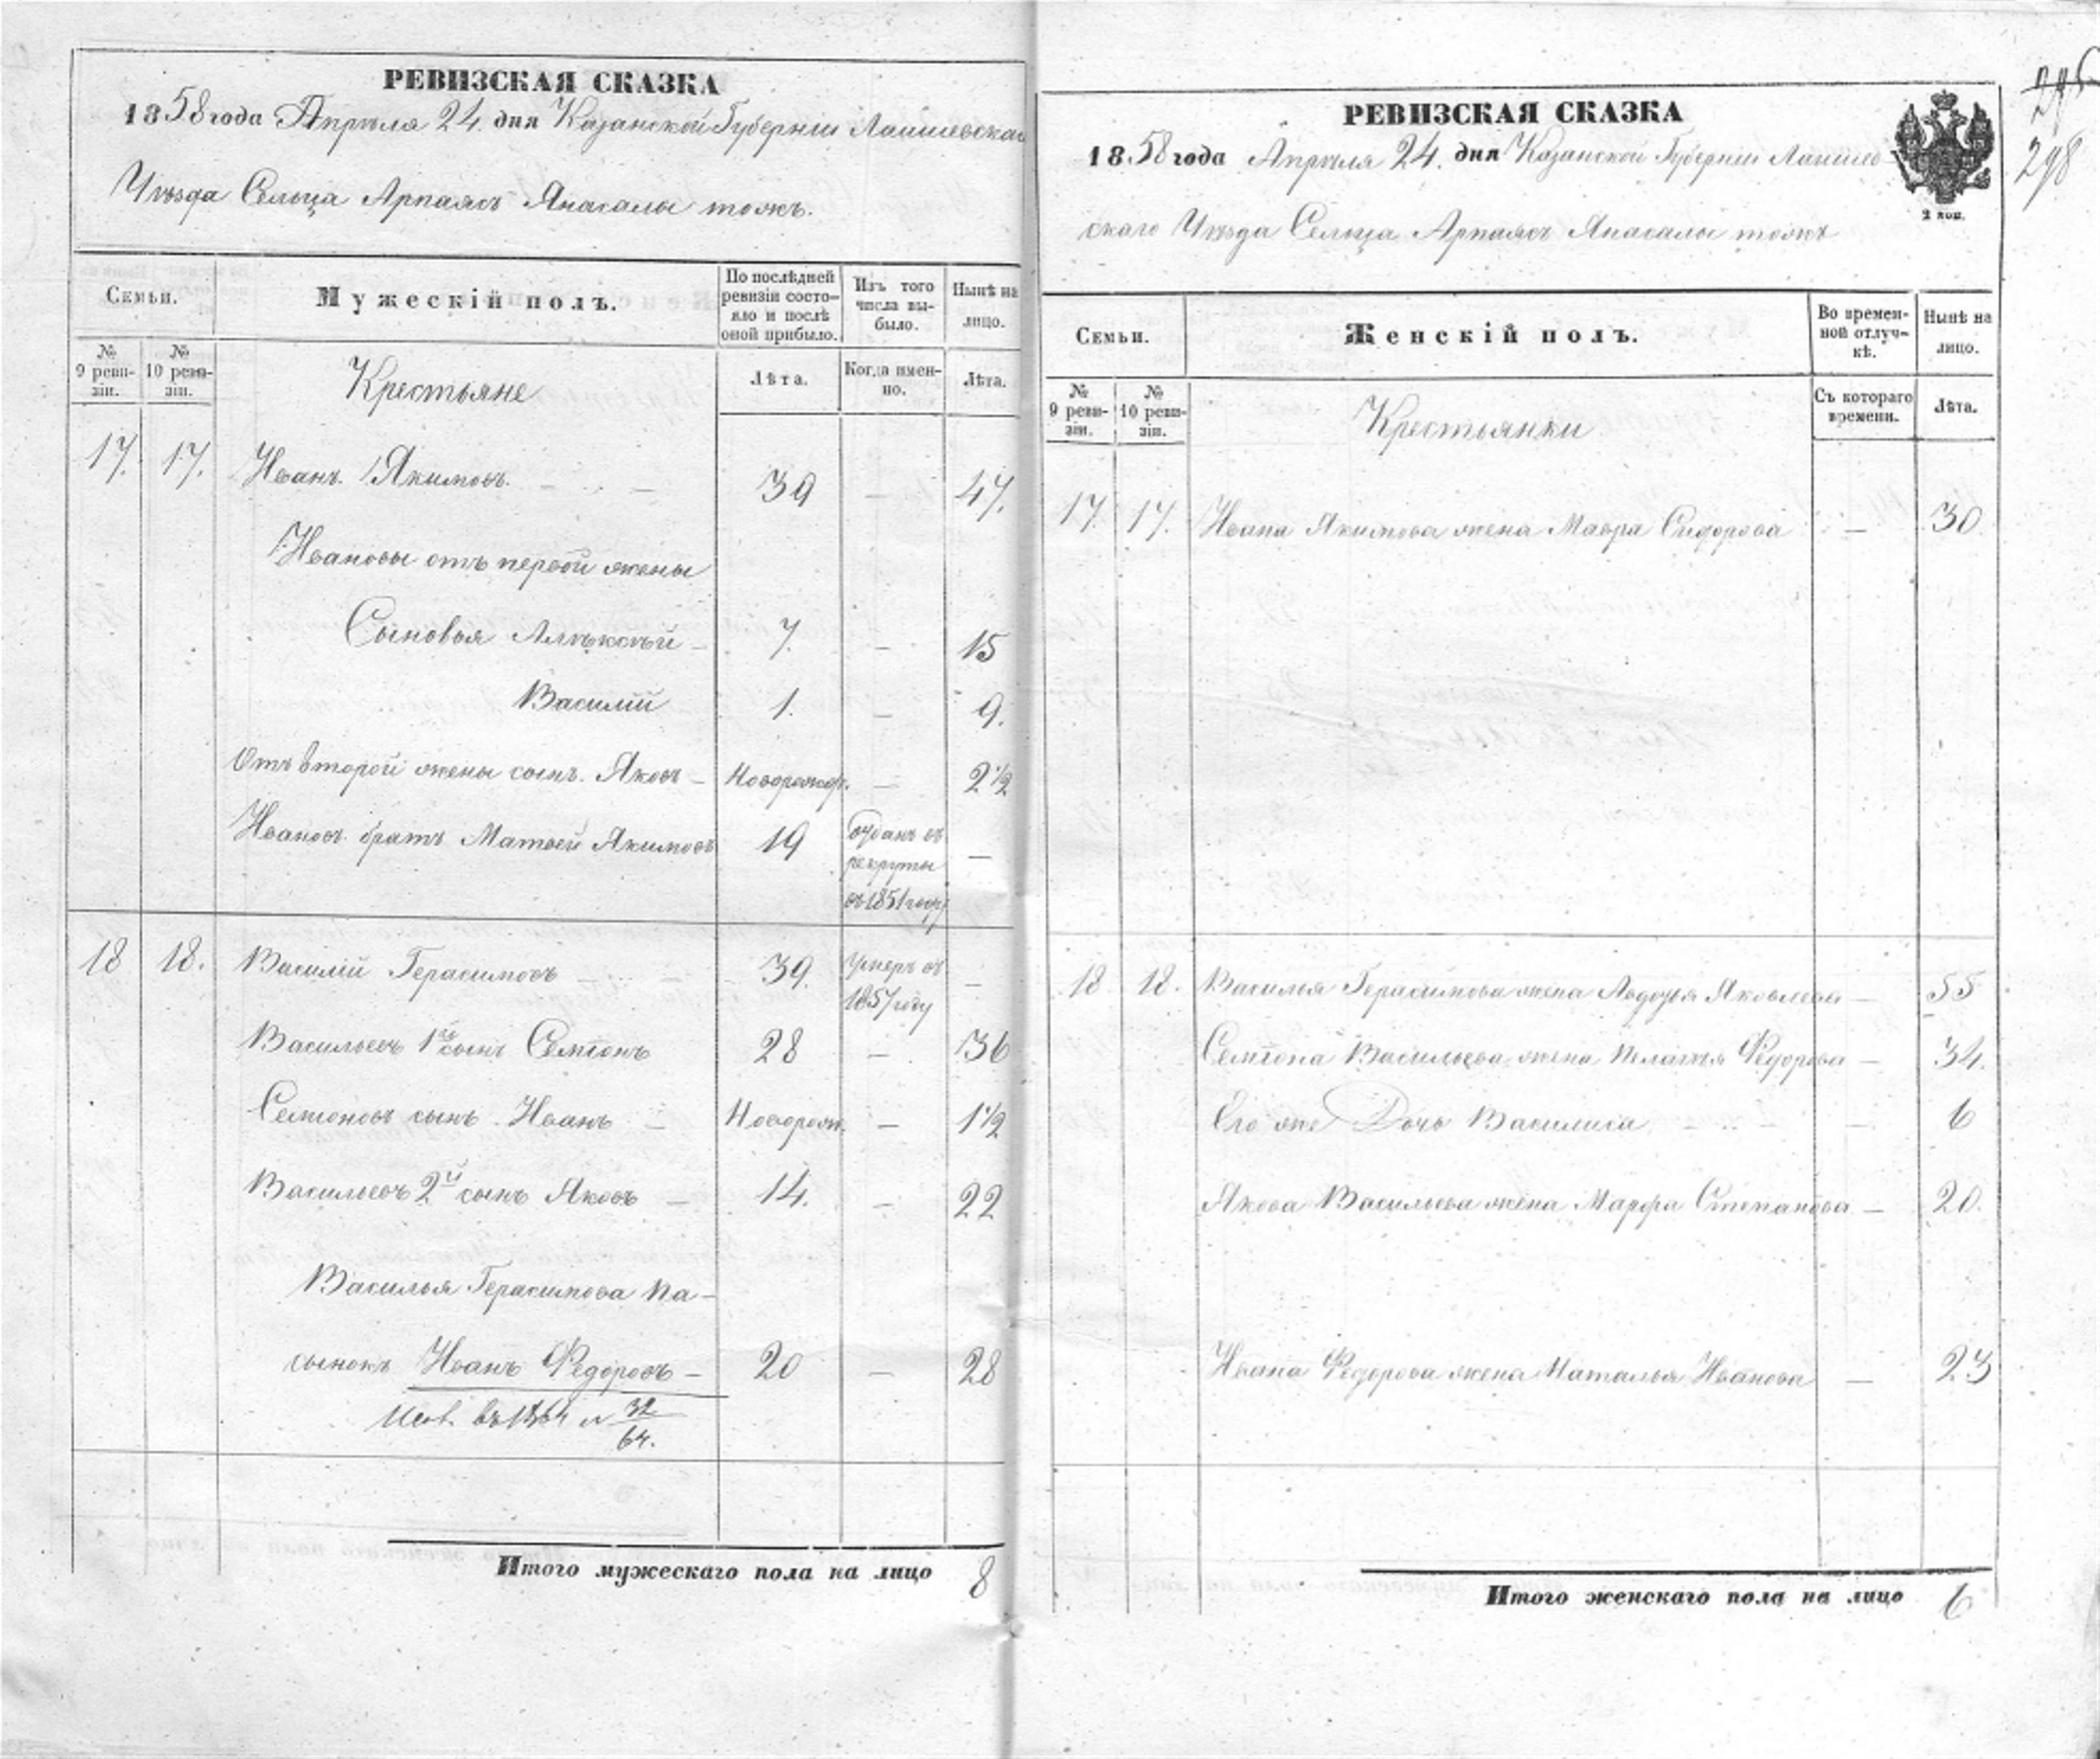 РЕВИЗСКАЯ СКАЗКА
1858 года Апреля 24. дня Казанской Губернии Лаишевскаго
Уѣзда Сельца Арпаязъ Янасалы тожъ.
Семьи.
Мужескій полъ.
По послѣдней ревизіи состояло и послѣ оной прибыло.
Изъ того числа выбыло.
Нынѣ на лицо.
№ 9 ревизіи.
№ 10 ревизіи.
Крестьяне
Лѣта.
Когда именно.
Лѣта.
17. 17. Иванъ Якимовъ. 39 — 47.
Ивановы отъ первой жены
Сыновья Алѣксѣй — 7. — 15
Василій 1. — 9.
Отъ второй жены сынъ. Яковъ — Новорожд. — 2 1/2
Ивановъ братъ Матвей Якимовъ 19 отданъ въ рекруты въ 1851 году —
18 18. Василій Герасимовъ 39. Умеръ въ 1857 году —
Васильевъ 1й сынъ Семіонъ 28 — 36
Семіоновъ сынъ. Иванъ — Новорож. — 1 1/2
Васильевъ 2й сынъ Яковъ — 14. — 22
Василья Герасимова па-
сынокъ Иванъ Федоровъ — 20 — 28
32
64.
Итого мужескаго пола на лицо 8
295
298
РЕВИЗСКАЯ СКАЗКА
1858 года Апреля 24. дня Казанской Губерніи Лаишев
скаго Уѣзда Сельца Арпаязъ Янасалы тожъ
2 коп.
Семьи.
Женскій полъ.
Во временной отлучкѣ.
Нынѣ на лицо.
№ 9 ревизіи.
№ 10 ревизіи.
Крестьянки
Съ котораго времени.
Лѣта.
17. 17. Ивана Якимова жена Мавра Сидорова — 30
18 18. Василья Герасимова жена Авдотья Яковлева — 55
Семіона Васильева жена Пелагея Федорова — 34.
Его же Дочь Василиса — 6
Якова Васильева жена Марфа Степанова — 20.
Ивана Федорова жена Наталья Иванова — 23
Итого женскаго пола на лицо 6